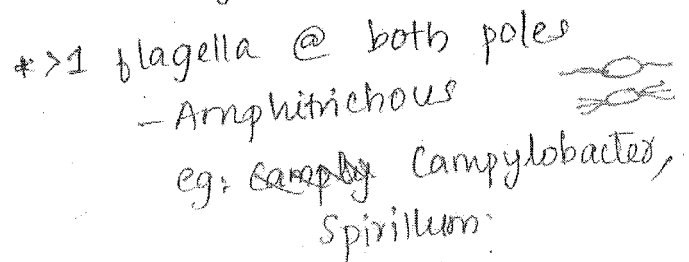 * >1 flagella @ both poles
- Amphitrichous
eg: Campylobacter,
Spirillum.